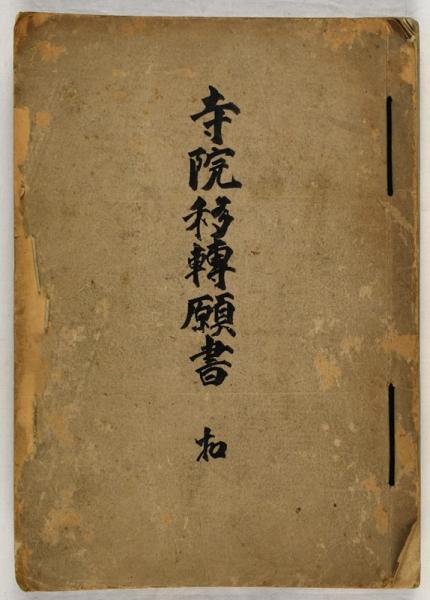 寺院移轉願書
扣